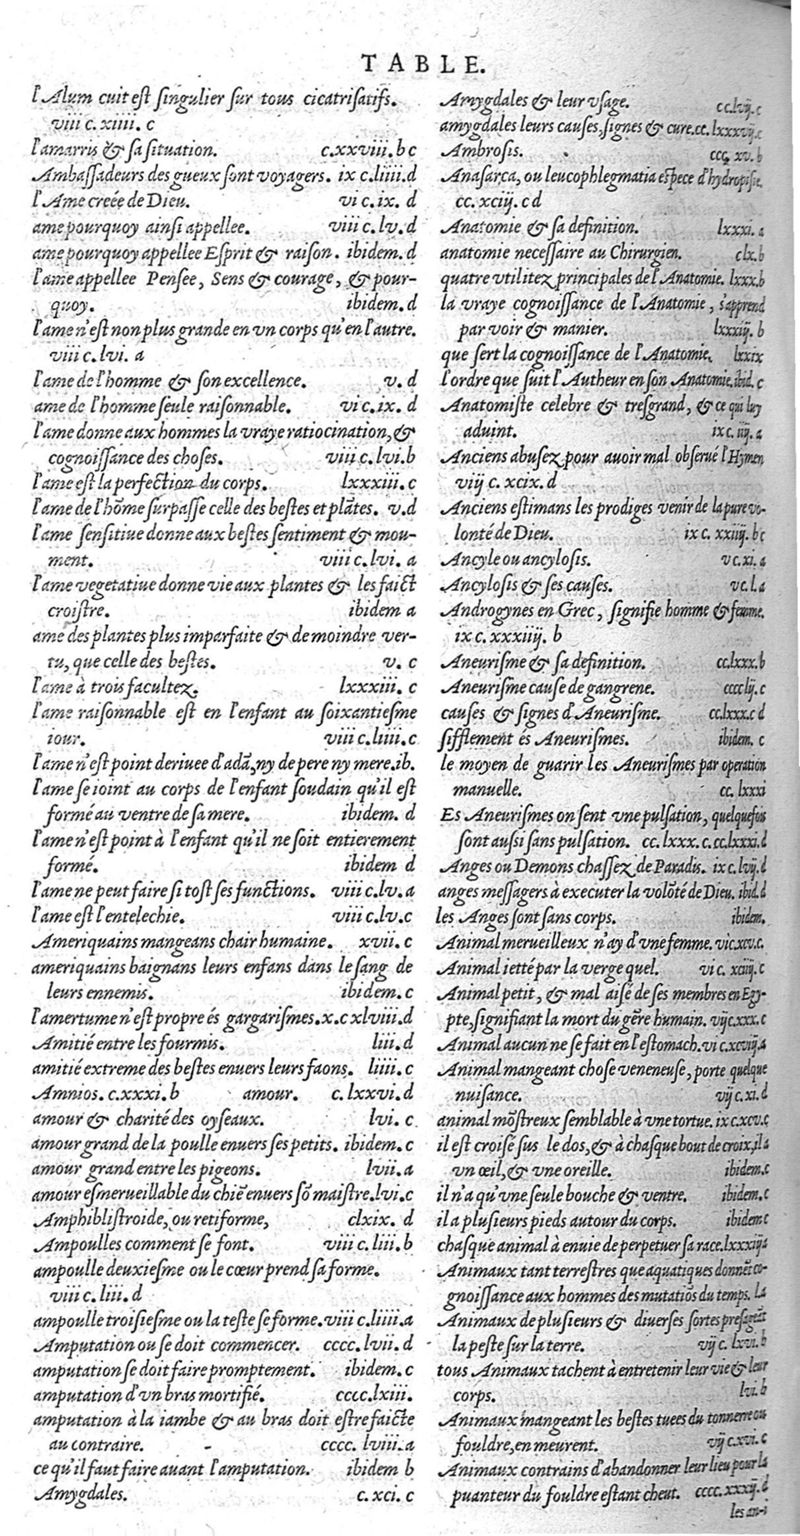 TABLE.
l'Alum cuit est singulier sur tous cicatrisatifs.
viii c. xiiii. c
l'amarris & sa situation. c.xxviii. b c
Ambassadeurs des gueux sont voyagers. ix c.liiii.d
l'Ame creée de Dieu. vi c.ix. d
ame pourquoy ainsi appellee. viii c. lv. d
ame pourquoy appellee Esprit & raison. ibidem. d
l'ame appellee Pensee, Sens & courage, & pour-
quoy. ibidem. d
l'ame n'est non plus grande en vn corps qu'en l'autre.
viii c. lvi. a
l'ame de l'homme & son excellence. v. d
ame de l'homme seule raisonnable. vi c.ix. d
l'ame donne aux hommes la vraye ratiocination, &
cognoissance des choses. viii c. lvi.b
l'ame est la perfection du corps. lxxxiii. c
l'ame de l'hõme surpasse celle des bestes et plãtes. v.d
l'ame sensitiue donne aux bestes sentiment & mou-
ment. viii c. lvi. a
l'ame vegetatiue donne vie aux plantes & les faict
croistre. ibidem a
ame des plantes plus imparfaite & de moindre ver-
tu, que celle des bestes. v. c
l'ame à trois facultez. lxxxiii. c
l'ame raisonnable est en l'enfant au soixantiesme
iour. viii c.liiii. c
l'ame n'est point deriuee d'adã, ny de pere ny mere. ib.
l'ame se ioint au corps de l'enfant soudain qu'il est
formé au ventre de sa mere. ibidem. d
l'ame n'est point à l'enfant qu'il ne soit entierement
formé. ibidem d
l'ame ne peut faire si tost ses functions. viii c. lv. a
l'ame est l'entelechie. viii c. lv. c
Ameriquains mangeans chair humaine. xvii. c
ameriquains baignans leurs enfans dans le sang de
leurs ennemis. ibidem. c
l'amertume n'est propre és gargarismes. x.c xlviii.d
Amitié entre les fourmis. liii. d
amitié extreme des bestes enuers leurs faons. liiii. c
Amnios. c.xxxi. b amour. c. lxxvi. d
amour & charité des oyseaux. lvi. c
amour grand de la poulle enuers ses petits. ibidem. c
amour grand entre les pigeons. lvii. a
amour esmerueillable du chiẽ enuers sõ maistre. lvi.c
Amphiblistroide, ou retiforme, clxix. d
Ampoulles comment se font. viii c. liii. b
ampoulle deuxiesme ou le cœur prend sa forme.
viii c. liii. d
ampoulle troisiesme ou la teste se forme. viii c. liiii.a
Amputation ou se doit commencer. cccc. lvii. d
amputation se doit faire promptement. ibidem. c
amputation d'vn bras mortifié. cccc.lxiii.
amputation à la iambe & au bras doit estre faicte
au contraire. cccc. lviii. a
ce qu'il faut faire auant l'amputation. ibidem b
Amygdales. c. xci. c
Amygdales & leur vsage. cc.lvij. c
amygdales leurs causes, signes & cure. cc. lxxxvij. c
Ambrosis. ccc. xv. b
Anasarca, ou leucophlegmatia espece d'hydropisie.
cc. xciij. c d
Anatomie & sa definition. lxxxi. a
anatomie necessaire au Chirurgien. clx. b
quatre vtilitez principales de l'Anatomie. lxxx.b
la vraye cognoissance de l'Anatomie, s'apprend
par voir & manier. lxxxij. b
que sert la cognoissance de l'Anatomie. lxxix
l'ordre que suit l'Autheur en son Anatomie. ibid. c
Anatomiste celebre & tresgrand, & ce qui luy
aduint. ix c. iij. a
Anciens abusez pour auoir mal obserué l'Hymen
viij c. xcix. d
Anciens estimans les prodiges venir de la pure vo-
lonté de Dieu. ix c. xxiiij. b c
Ancyle ou ancylosis. v c. xi. a
Ancylosis & ses causes. v c. l. a
Androgynes en Grec, signifie homme & femme.
ix c. xxxiiij. b
Aneurisme & sa definition. cc.lxxx. b
Aneurisme cause de gangrene. cccc lij. c
causes & signes d'Aneurisme. cc.lxxx. c d
sifflement és Aneurismes. ibidem. c
le moyen de guarir les Aneurismes par operation
manuelle. cc. lxxxi
Es Aneurismes on sent vne pulsation, quelquefois
sont aussi sans pulsation. cc. lxxx. c. cc.lxxxi. d
Anges ou Demons chassez de Paradis. ix c. lvij. d
anges messagers à executer la volõté de Dieu. ibid. d
les Anges sont sans corps. ibidem.
Animal merueilleux n'ay d'vne femme. vi c.xcv. c.
Animal ietté par la verge quel. vi c. xciij. c
Animal petit, & mal aisé de ses membres en Egy-
pte, signifiant la mort du gẽre humain. vij c.xxx. c
Animal aucun ne se fait en l'estomach. vi c.xcvij. a
Animal mangeant chose veneneuse, porte quelque
nuisance. vij c. xi. d
animal mõstreux semblable à vne tortue. ix c.xcv. c
il est croisé sus le dos, & à chasque bout de croix, il a
vn œil, & vne oreille. ibidem. c
il n'a qu'vne seule bouche & ventre. ibidem. c
il a plusieurs pieds autour du corps. ibidem c
chasque animal à enuie de perpetuer sa race. lxxxiij a
Animaux tant terrestres que aquatiques donnẽt co-
gnoissance aux hommes des mutatiõs du temps. l.a
Animaux de plusieurs & diuerses sortes presagẽt
la peste sur la terre. vij c. lxvi. b
tous Animaux tachent à entretenir leur vie & leur
corps. lvi. b
Animaux mangeant les bestes tuees du tonnerre ou
fouldre, en meurent. vij c. xvi. c
Animaux contrains d'abandonner leur lieu pour la
puanteur du fouldre estant cheut. cccc. xxxij. d
les an-